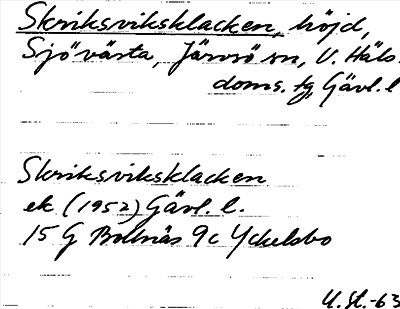 Skriksviksklacken, höjd,
Sjövästa, Järvsö sn, V. Häls.
doms. tg, Gävl. l
Skriksviksklacken
ek (1952) Gävl. l.
15 G Bollnäs 9c Yckelsbo
U.St.-63